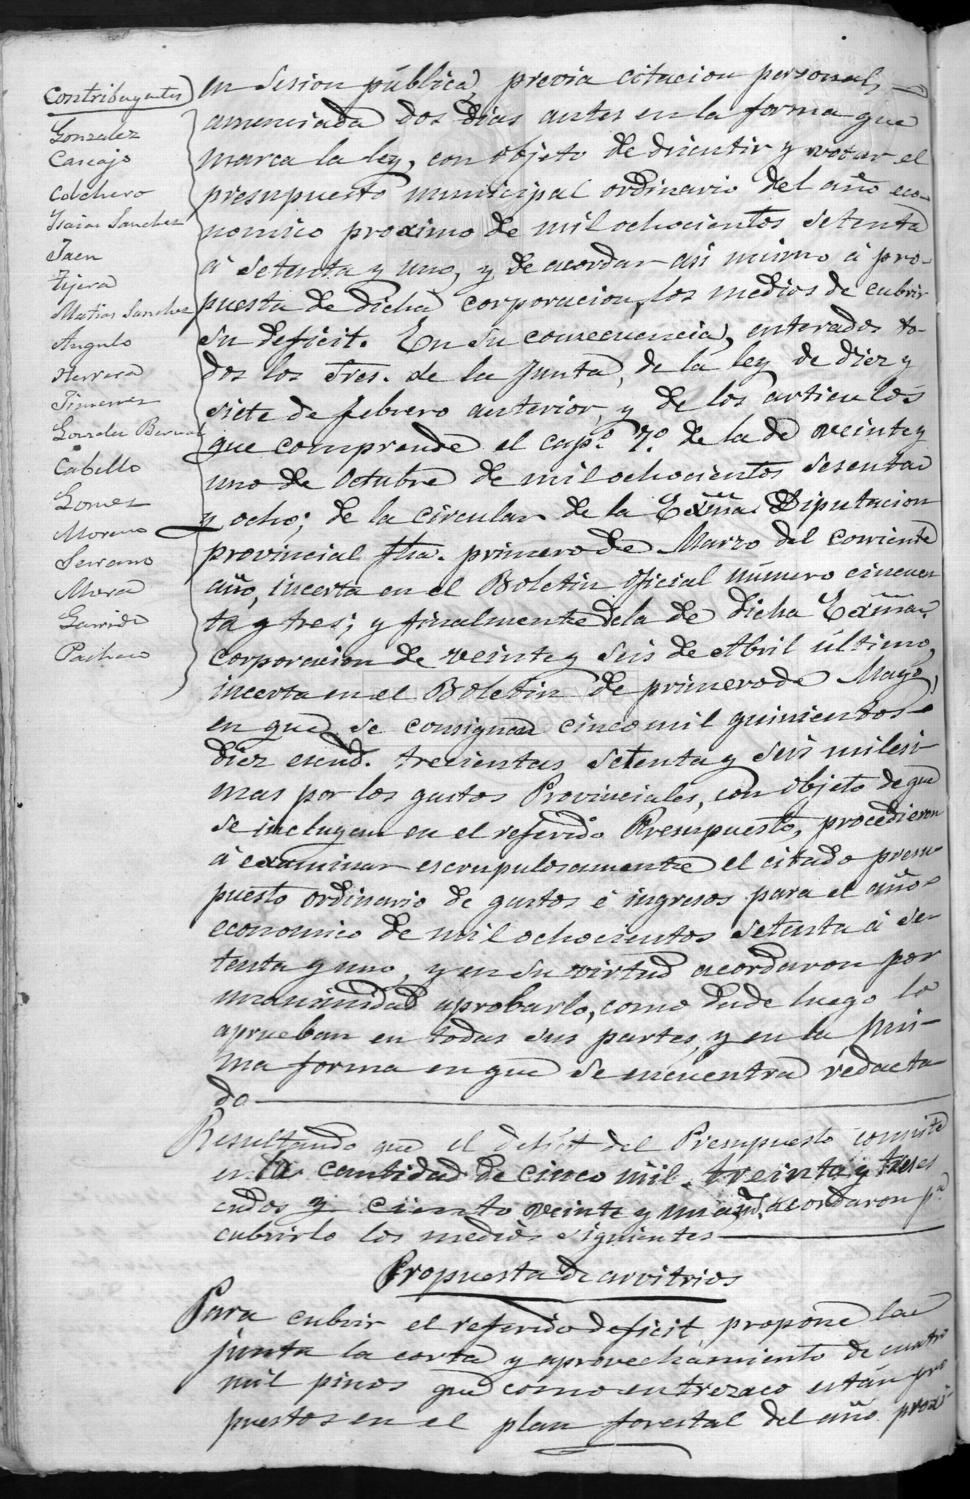 Contribuyentes
Gonzalez
Carcajo
Colchero
Isaias Sanchez
Jaen
Tijera
Matias Sanchez
Angulo
Herrera
Jimenez
Gonzalez Bernal
Cabello
Gomez
Moreno
Serrano
Mora
Garrido
Pacheco
en sesion pública, previa citacion personal,
anunciada dos dias antes en la forma que
marca la ley, con objeto de discutir y votar el
presupuesto municipal ordinario del año eco-
nomico proximo de mil ochocientos setenta
á setenta y uno, y de acordar asi mismo á pro-
puesta de dicha corporacion, los medios de cubrir
su deficit. En su consecuencia, enterados to-
dos los Sres. de la Junta, de la ley de diez y
siete de febrero anterior, y de los articulos
que comprende el cap.º 7.º de la de veinte y
uno de Octubre de mil ochocientos sesenta
y ocho; de la circular de la Exma. Diputacion
provincial fha. primero de Marzo del corriente
año, incerta en el Boletin oficial número cincuen
ta y tres; y finalmente de la de dicha Exma.
corporacion de veinte y seis de Abril último,
incerta en el Boletin de primero de Mayo,
en que se consignan cinco mil quinientos
diez escud. trecientas setenta y seis milesi-
mas por los gastos Provinciales, con objeto de que
se incluyan en el referido Presupuesto, procedieron
á examinar escrupulosamente el citado presu-
puesto ordinario de gastos é ingresos para el año
economico de mil ochocientos setenta á se-
tenta y uno, y en su virtud acordaron por
unanimidad aprobarlo, como desde luego lo
aprueban en todas sus partes, y en la mis-
ma forma en que se encuentra redacta-
do
Resultando que el deficit del Presupuesto consiste
en la cantidad de cinco mil treinta y tres es
cudos y ciento veinte y una acordaron p.ª
cubrirlo los medios siguientes
Propuesta de arvitrios
Para cubrir el referido deficit, propone la
junta la corta y aprovechamiento de cuatro
mil pinos que como entrezaco están pro
puestos en el plan forestal del año proxi